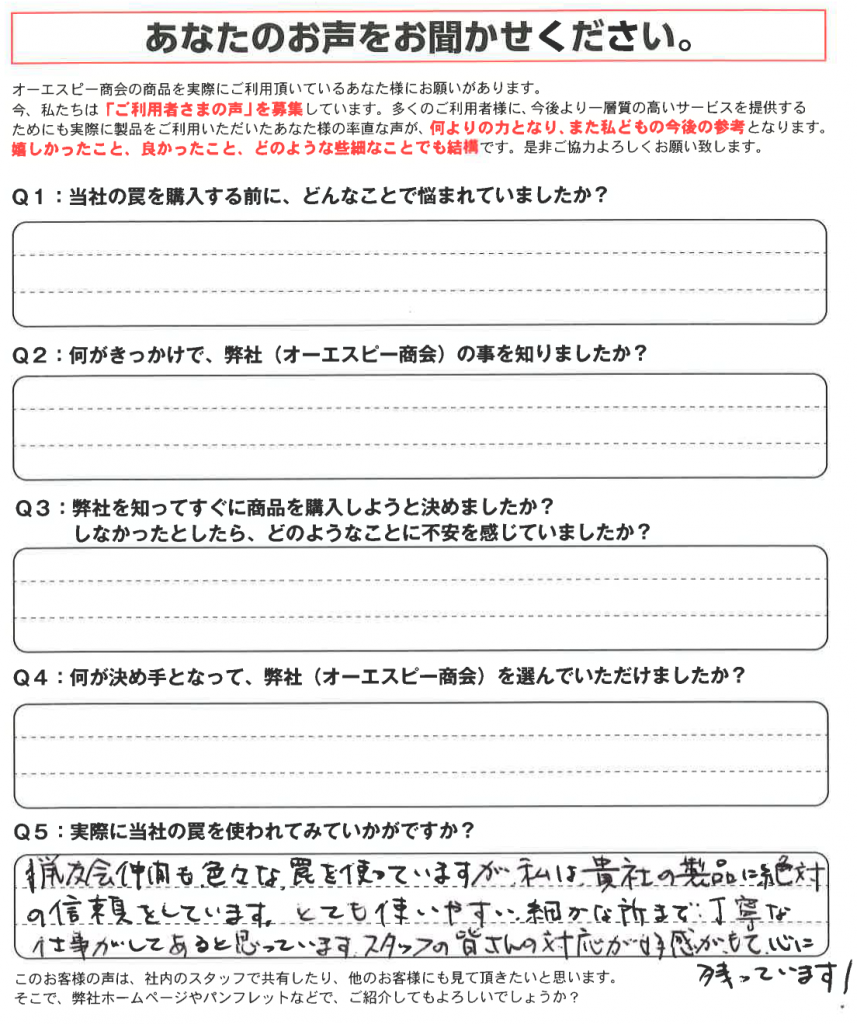 あなたのお声をお聞かせください。
オーエスピー商会の商品を実際にご利用頂いているあなた様にお願いがあります。
今、私たちは「ご利用者さまの声」を募集しています。多くのご利用者様に、今後より一層質の高いサービスを提供する
ためにも実際に製品をご利用いただいたあなた様の率直な声が、何よりの力となり、また私どもの今後の参考となります。
嬉しかったこと、良かったこと、どのような些細なことでも結構です。是非ご協力よろしくお願い致します。
Q1：当社の罠を購入する前に、どんなことで悩まれていましたか？
Q2：何がきっかけで、弊社（オーエスピー商会）の事を知りましたか？
Q3：弊社を知ってすぐに商品を購入しようと決めましたか？
しなかったとしたら、どのようなことに不安を感じていましたか？
Q4：何が決め手となって、弊社（オーエスピー商会）を選んでいただけましたか？
Q5：実際に当社の罠を使われてみていかがですか？
猟友会仲間も色々な罠を使っていますが、私は貴社の製品に絶対
の信頼をしています。とても使いやすい、細かな所まで丁寧な
仕事がしてあると思っています。スタッフの皆さんの対応が好感がもて、心に
残っています！
このお客様の声は、社内のスタッフで共有したり、他のお客様にも見て頂きたいと思います。
そこで、弊社ホームページやパンフレットなどで、ご紹介してもよろしいでしょうか？